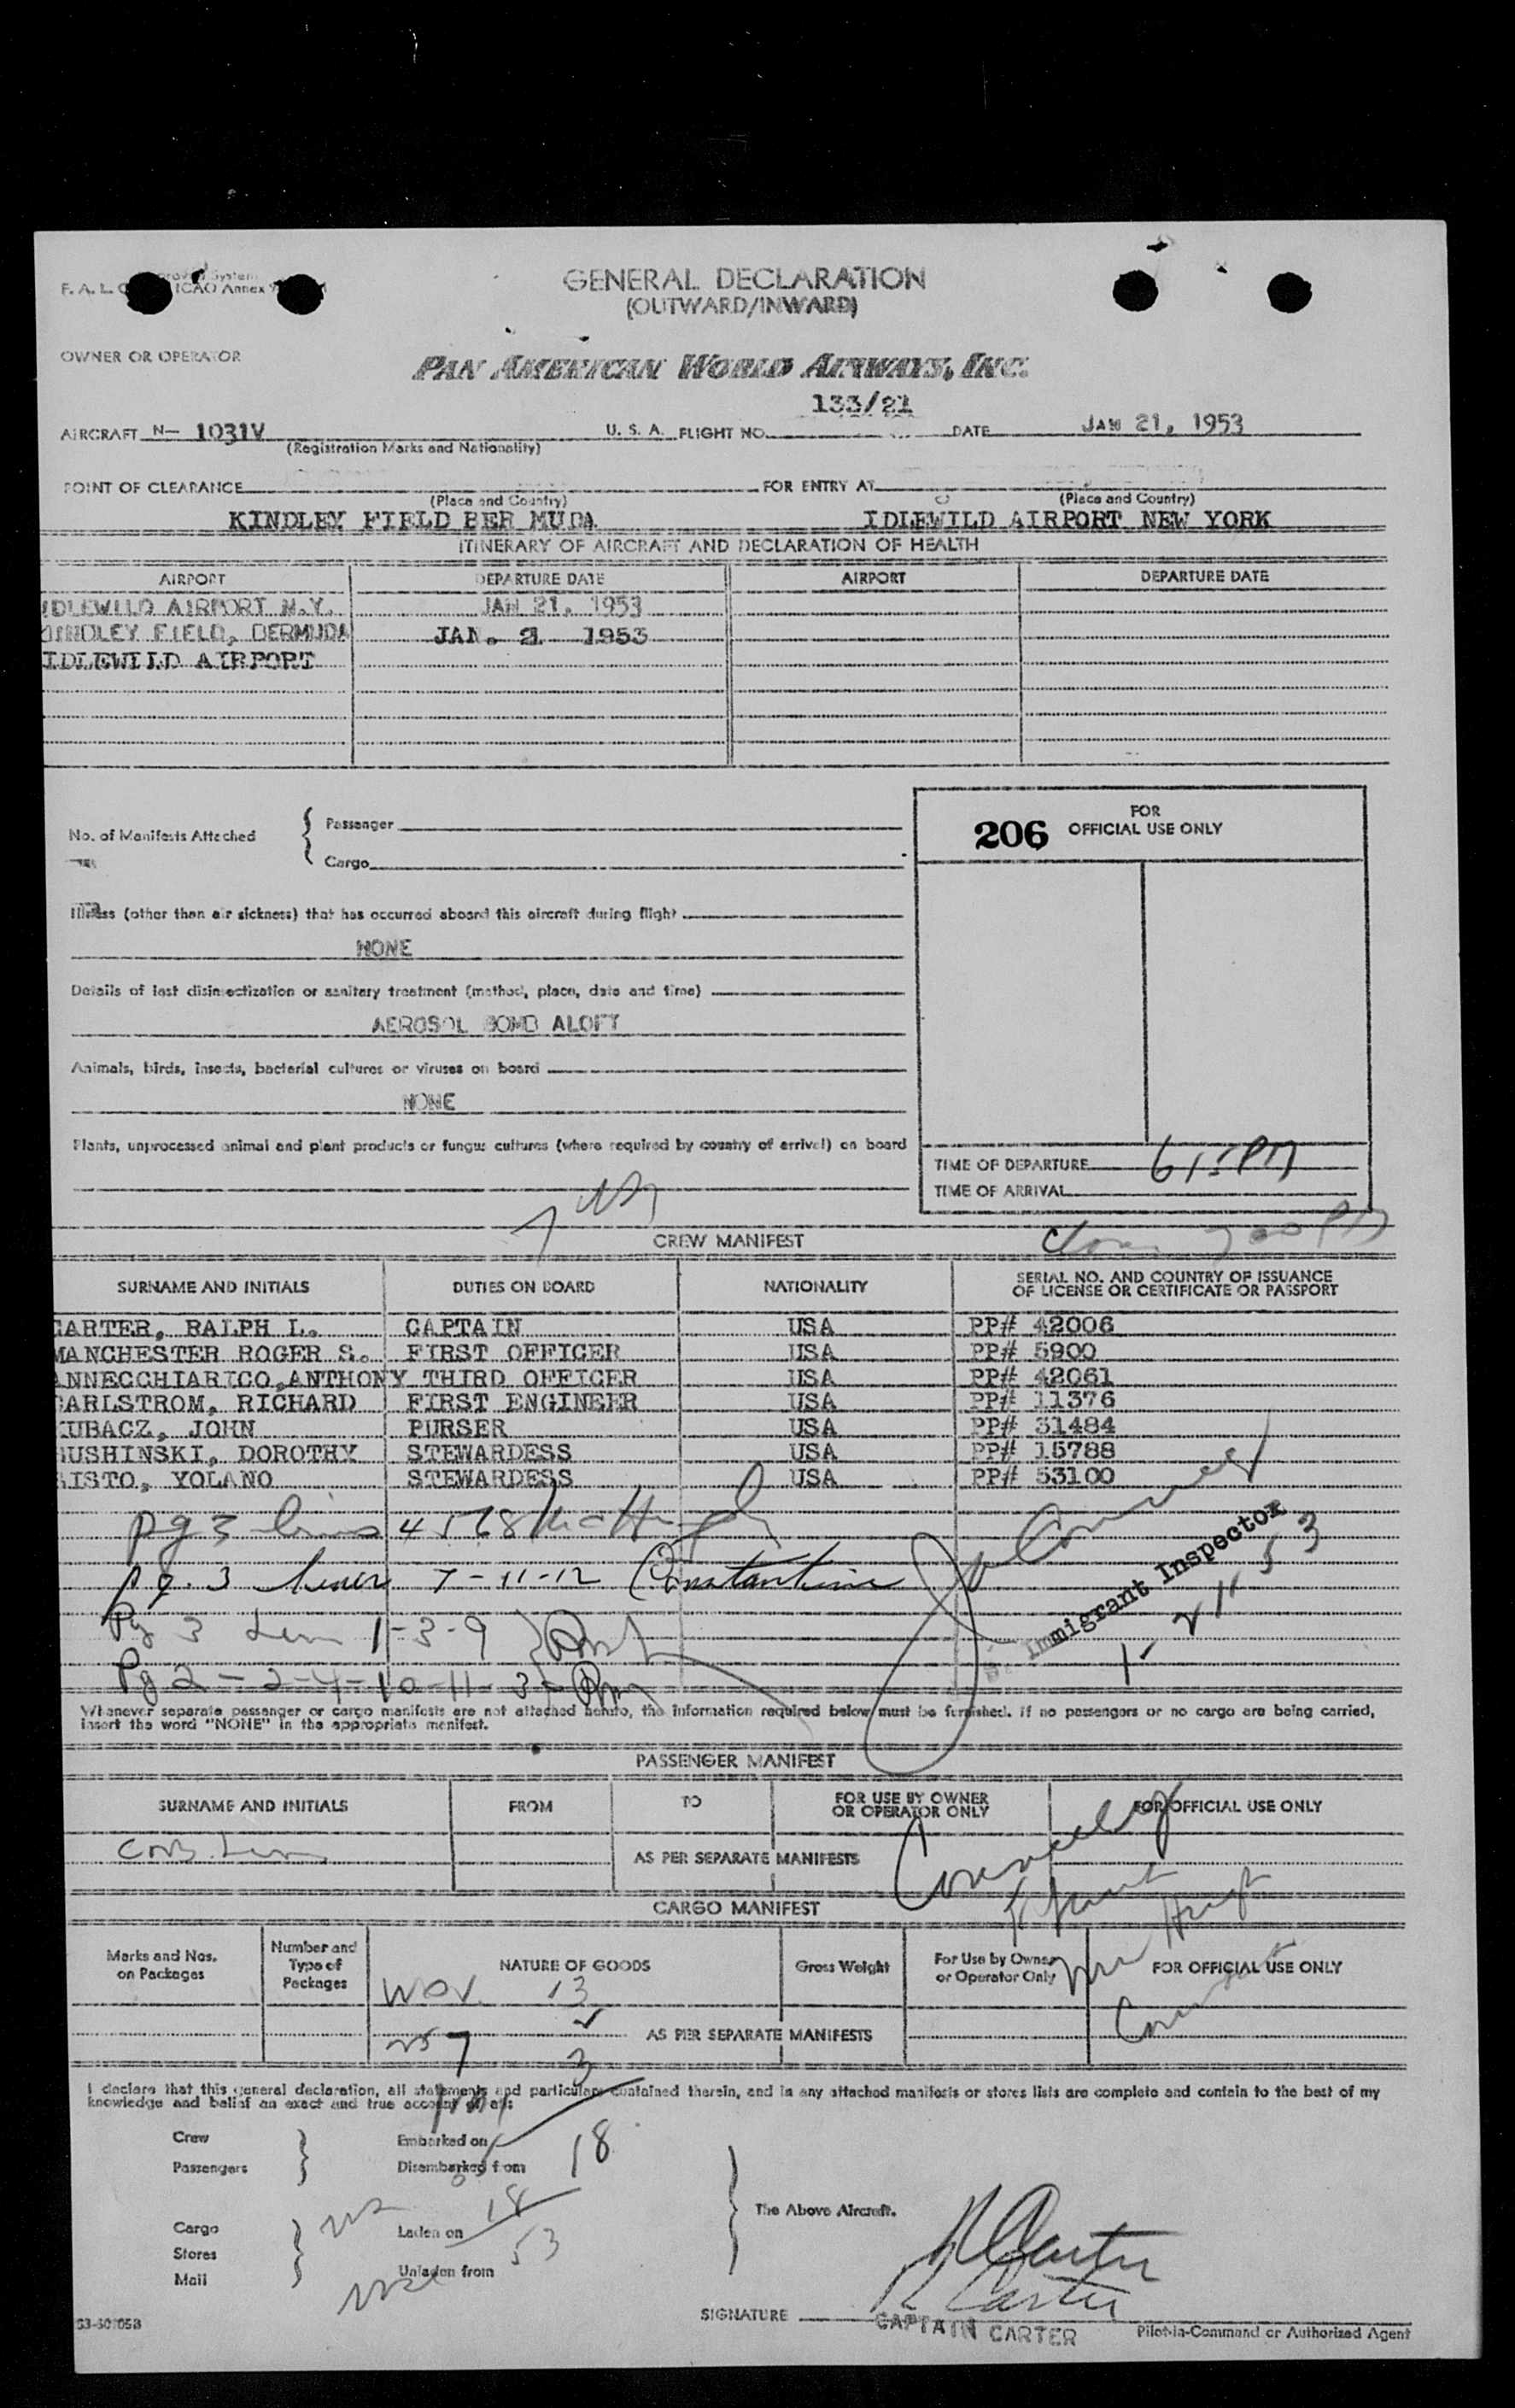 GENERAL DECLARATION
(OUTWARD/INWARD)
F. A. L. ICAO Annex
OWNER OR OPERATOR
PAN AMERICAN WORLD AIRWAYS, INC.
133/21
AIRCRAFT N- 1031V U. S. A. FLIGHT NO. DATE JAN 21, 1953
(Registration Marks and Nationality)
POINT OF CLEARANCE FOR ENTRY AT
(Place and Country) (Place and Country)
KINDLEY FIELD BER MUDA IDLEWILD AIRPORT NEW YORK
ITINERARY OF AIRCRAFT AND DECLARATION OF HEALTH
AIRPORT DEPARTURE DATE AIRPORT DEPARTURE DATE
IDLEWILD AIRPORT N.Y. JAN 21, 1953
KINDLEY FIELD, BERMUDA JAN. 21 1953
IDLEWILD AIRPORT
No. of Manifests Attached { Passenger
Cargo
206 FOR OFFICIAL USE ONLY
Illness (other than air sickness) that has occurred aboard this aircraft during flight
NONE
Details of last disinsectization or sanitary treatment (method, place, date and time)
AEROSOL BOMB ALOFT
Animals, birds, insects, bacterial cultures or viruses on board
NONE
Plants, unprocessed animal and plant products or fungus cultures (where required by country of arrival) on board
TIME OF DEPARTURE 615PM
TIME OF ARRIVAL
CREW MANIFEST
SURNAME AND INITIALS DUTIES ON BOARD NATIONALITY SERIAL NO. AND COUNTRY OF ISSUANCE OF LICENSE OR CERTIFICATE OR PASSPORT
CARTER, RALPH L. CAPTAIN USA PP# 42006
MANCHESTER ROGER S. FIRST OFFICER USA PP# 5900
ANNECCHIARICO,ANTHONY THIRD OFFICER USA PP# 42061
CARLSTROM, RICHARD FIRST ENGINEER USA PP# 11376
KUBACZ, JOHN PURSER USA PP# 31484
USHINSKI, DOROTHY STEWARDESS USA PP# 15788
ISTO, YOLANO STEWARDESS USA PP# 53100
pg 3 lines 4 5 7 8
pg. 3 lines 7-11-12 Constantine
Pg 3 Lines 1-3-9
Pg 2 - 2-4-10-11-3
Immigrant Inspector
1-21-53
Whenever separate passenger or cargo manifests are not attached hereto, the information required below must be furnished. If no passengers or no cargo are being carried,
insert the word "NONE" in the appropriate manifest.
PASSENGER MANIFEST
SURNAME AND INITIALS FROM TO FOR USE BY OWNER OR OPERATOR ONLY FOR OFFICIAL USE ONLY
AS PER SEPARATE MANIFESTS
CARGO MANIFEST
Marks and Nos. on Packages Number and Type of Packages NATURE OF GOODS Gross Weight For Use by Owner or Operator Only FOR OFFICIAL USE ONLY
13
AS PER SEPARATE MANIFESTS
7 3
I declare that this general declaration, all statements and particulars contained therein, and in any attached manifests or stores lists are complete and contain to the best of my
knowledge and belief an exact and true account of all:
Crew Embarked on
Passengers Disembarked from 18
The Above Aircraft.
Cargo Laden on 18
Stores 53
Mail Unladen from
R Carter
R Carter
SIGNATURE CAPTAIN CARTER Pilot-in-Command or Authorized Agent